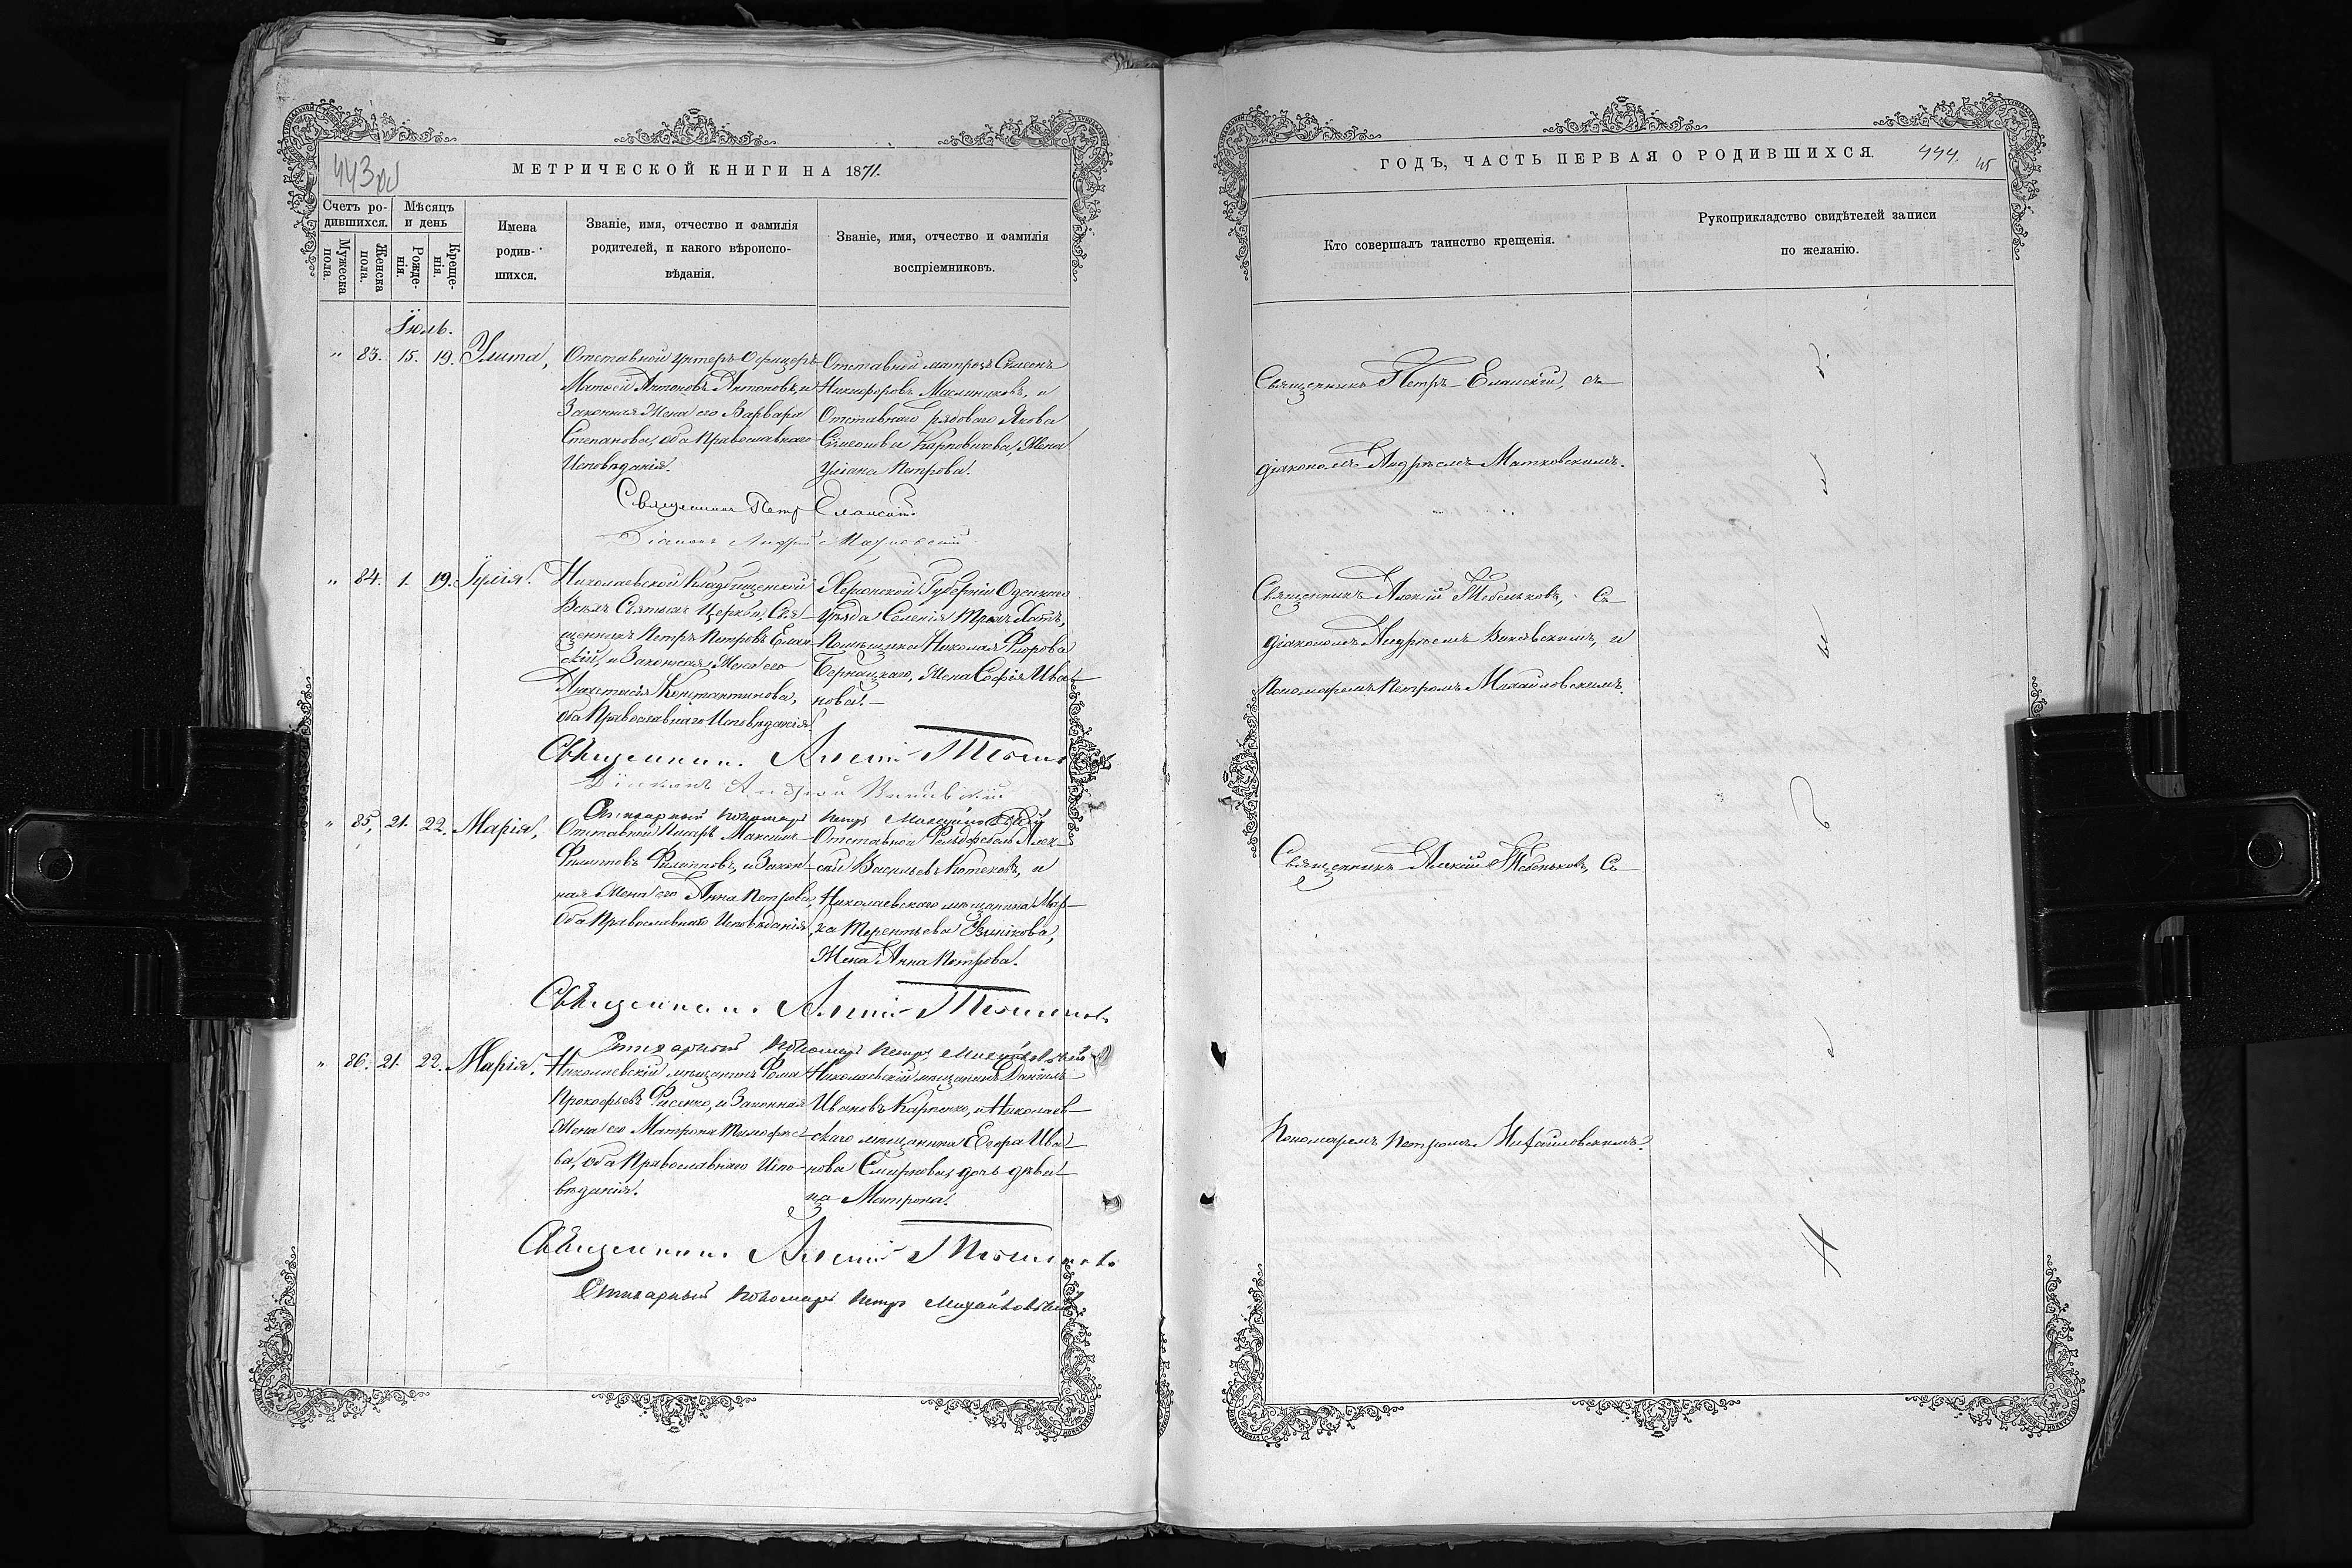 443 об
МЕТРИЧЕСКОЙ КНИГИ НА 1871.
Счетъ ро-
дившихся.
Мужеска пола.
Женска пола.
Мѣсяцъ
и день
Рожде-
нія.
Креще-
нія.
Имена
родив-
шихся.
Званіе, имя, отчество и фамилія
родителей, и какого вѣроиспо-
вѣданія.
Званіе, имя, отчество и фамилія
воспріемниковъ.
Іюль.
" 83. 15. 19. Улита,
Отставной Унтеръ-Офицеръ
Матвей Антоновъ Антоновъ, и
Законная Жена его Варвара
Степанова, оба Православнаго
Исповѣданія.
Отставной матрозъ Сѵмеонъ
Никифоровъ Маслиниковъ, и
Отставнаго рядоваго Якова
Сѵмеонова Карповичева, Жена
Улiана Петрова.
Священникъ Петръ Еланскій
Діаконъ Андрей
" 84. 1. 19. Іулія.
Николаевской Кладбищенской
Всѣхъ Святыхъ Церкви, Свя-
щенникъ Петръ Петровъ Елан-
скій, и Законная Жена его
Анастасія Константинова,
оба Православнаго Исповѣданія.
Херсонской Губерніи Одесскаго
уѣзда Селенія Трехъ Хатъ,
Помѣщика Николая Флорова
Бернацкаго, Жена Софія Ива-
нова.
Священникъ Алексій Тебеньковъ
Діаконъ Андрей
Стихарный пономарь Петръ Михайловскій
" 85, 21. 22. Марія,
Отставной Писарь Максимъ
Филиповъ Филиповъ, и Закон-
ная Жена его Анна Петрова,
Оба Православнаго Исповѣданія
Отставной Фельдфебель Алек-
сѣй Васильевъ Котековъ, и
Николаевскаго мѣщанина Мар-
ка Терентьева
Жена Анна Петрова.
Священникъ Алексій Тебеньковъ
Стихарный пономарь Петръ Михайловскій
" 86. 21. 22. Марія.
Николаевскій мѣщанинъ Фома
Прокофьевъ Фисенко, и Законная
Жена его Матрона Тимофѣе-
ва, оба Православнаго Испо-
вѣданія.
Николаевскій мѣщанинъ Даніилъ
Ивановъ Карпенко, и Николаев-
скаго мѣщанина Егора Ива-
нова Смирнова, дочь дѣви-
ца Матрона.
Священникъ Алексій Тебеньковъ
Стихарный пономарь Петръ Михайловскій
ГОДЪ, ЧАСТЬ ПЕРВАЯ О РОДИВШИХСЯ. 444. 45
Кто совершалъ таинство крещенія.
Рукоприкладство свидѣтелей записи
по желанію.
Священникъ Петръ Еланскій, съ
діакономъ Андреемъ Матковскимъ.
Священникъ Алексій Тебеньковъ, Съ
діакономъ Андреемъ и
Пономаремъ Петромъ Михайловскимъ.
Священникъ Алексій Тебеньковъ, Съ
Пономаремъ Петромъ Михайловскимъ.